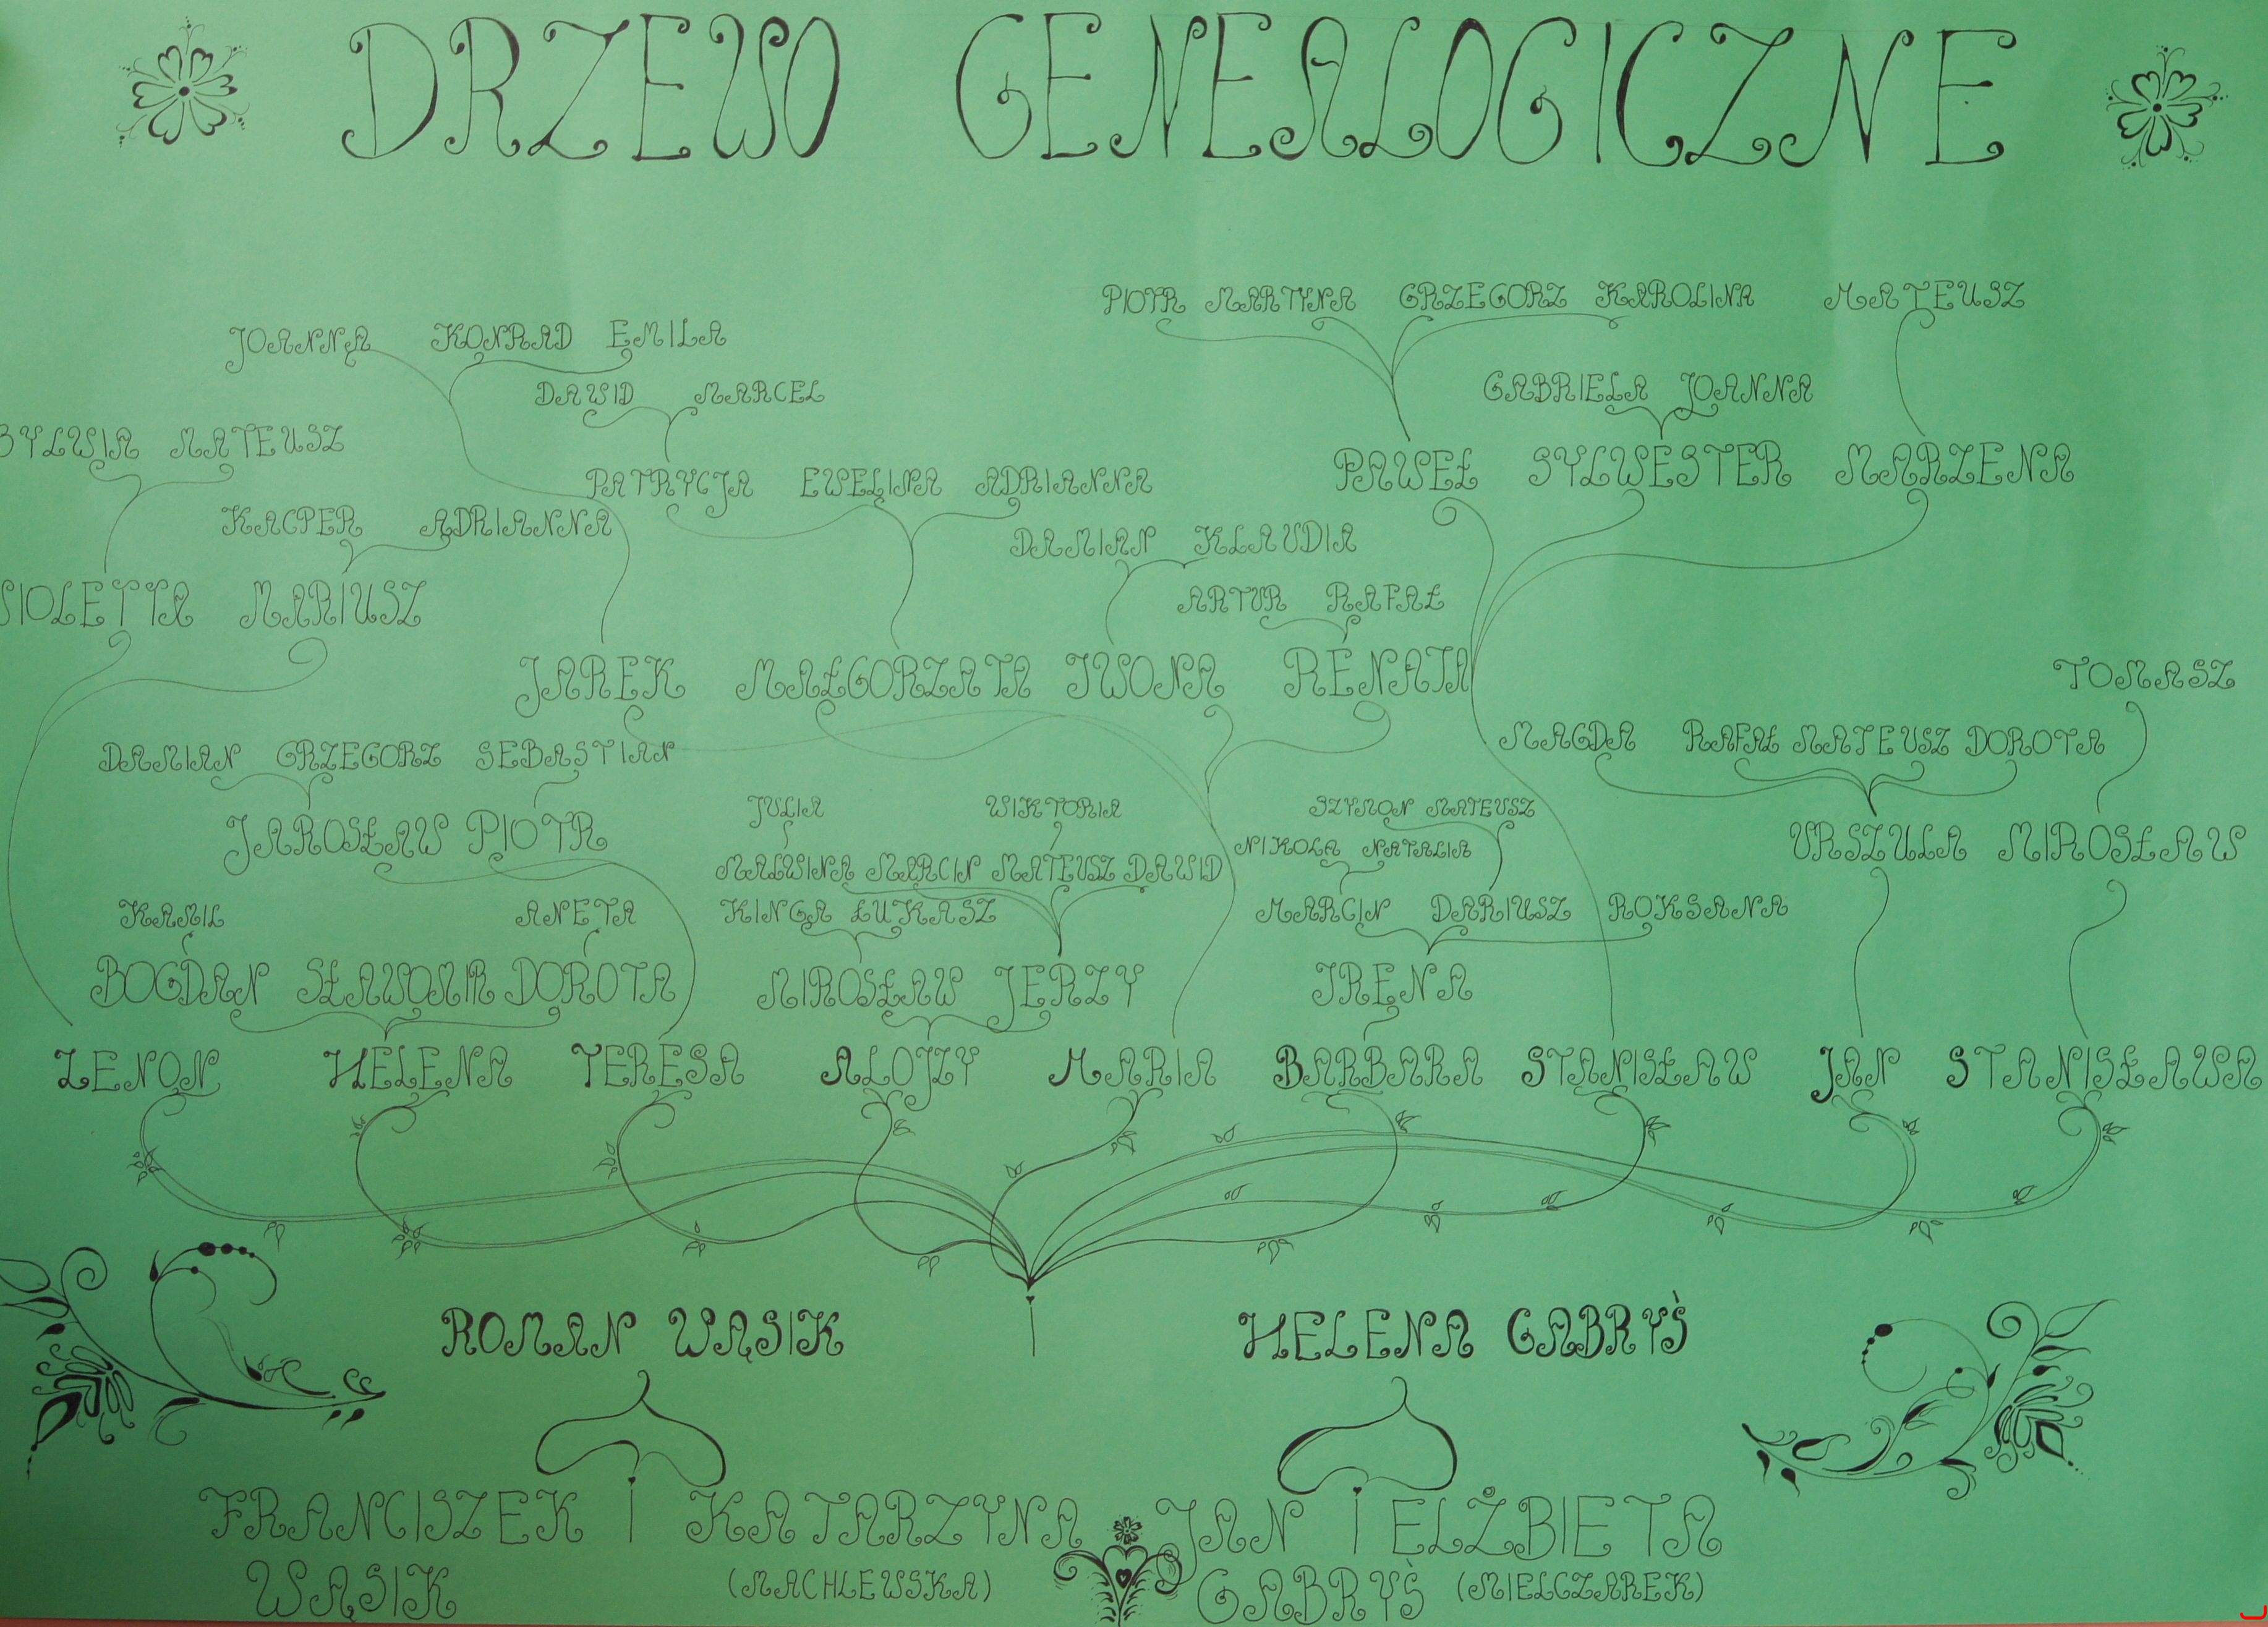 DRZEWO GENEALOGICZNE
PIOTR MARTYNA GRZEGORZ KAROLINA MATEUSZ
JOANNA KONRAD EMILA
DAWID MARCEL GABRIELA JOANNA
SYLWIA MATEUSZ
PATRYCJA EWELINA ADRIANNA PAWEŁ SYLWESTER MARZENA
KACPER ADRIANNA
DAMIAN KLAUDIA
WIOLETTA MARIUSZ ARTUR RAFAŁ
JAREK MAŁGORZATA IWONA RENATA TOMASZ
DAMIAN GRZEGORZ SEBASTIAN MAGDA RAFAŁ MATEUSZ DOROTA
JULIA WIKTORIA SZYMON MATEUSZ
JAROSŁAW PIOTR NIKOLA NATALIA URSZULA MIROSŁAW
MALWINA MARCIN MATEUSZ DAWID
KAMIL ANETA KINGA ŁUKASZ MARCIN DARIUSZ ROKSANA
BOGDAN SŁAWOMIR DOROTA MIROSŁAW JERZY IRENA
ZENON HELENA TERESA ALOJZY MARIA BARBARA STANISŁAW JAN STANISŁAWA
ROMAN WĄSIK HELENA GABRYŚ
FRANCISZEK I KATARZYNA JAN I ELŻBIETA
WĄSIK (MACHLEWSKA) GABRYŚ (MIELCZAREK)